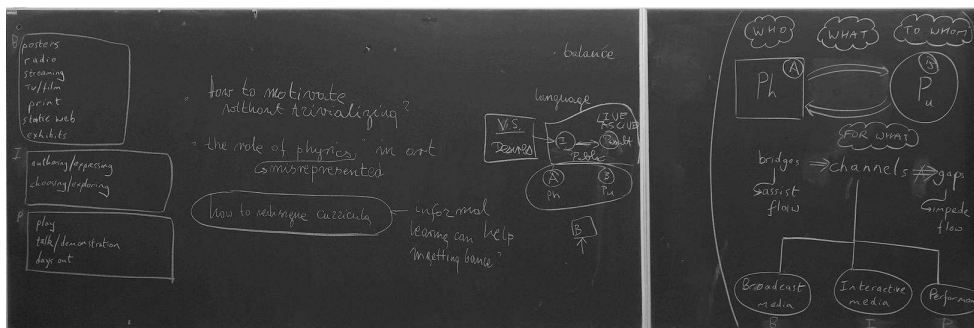 B
posters
radio
streaming
TV/film
print
static web
exhibits
I
authoring/expressing
choosing/exploring
P
play
talk/demonstration
days out
How to motivate
without trivializing?
the role of physics in art
misrepresented
how to redisigne curricula
informal
learning can help
balance
language
V.S.
I
LIVE
Public
A
B
Ph
Pu
B
WHO
WHAT
TO WHOM
Ph
A
B
Pu
FOR WHAT
bridges
channels
gaps
assist
flow
impede
flow
Broadcast
media
Interactive
media
B
I
P